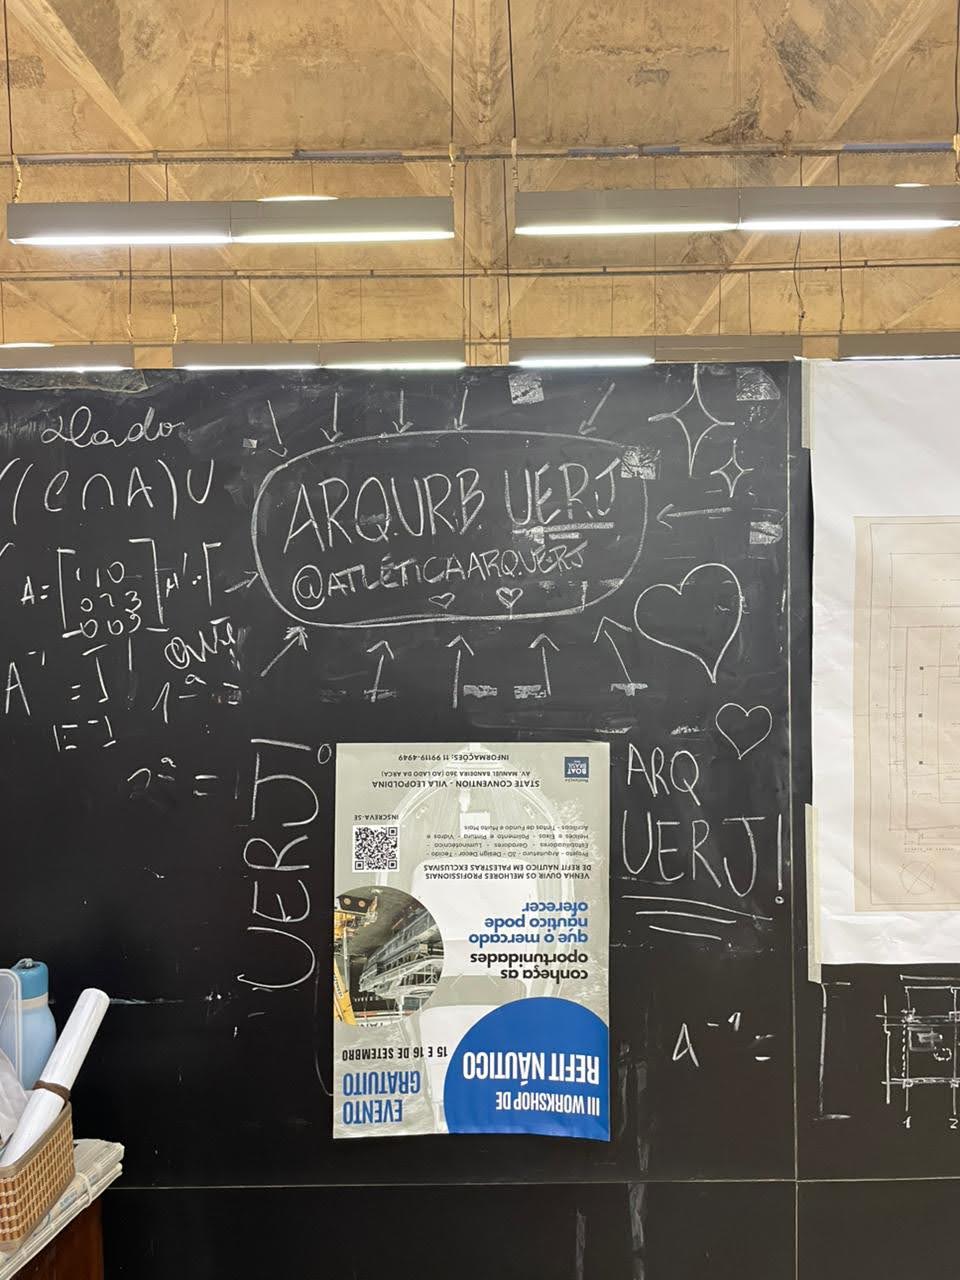 ((C∩A)U
ARQ.URB UERJ
@ATLÉTICAARQ.UERJ
A=
1 1 0
0 2 3
0 0 3
A⁻¹
1ª =
2ª =
UERJ!
ARQ
UERJ!
A⁻¹ =
1 2
III WORKSHOP DE
REFIT NÁUTICO
EVENTO
GRATUITO
15 E 16 DE SETEMBRO
conheça as
oportunidades
que o mercado
náutico pode
oferecer
VENHA OUVIR OS MELHORES PROFISSIONAIS
DE REFIT NÁUTICO EM PALESTRAS EXCLUSIVAS
Projeto - Arquitetura - 3D - Design Decor - Tecido -
Estabilizadores - Geradores - Luminotécnica -
Hélices e Eixos - Polimento e Pintura - Vidros e
Acrílicos - Tintas de Fundo e Muito Mais
INSCREVA-SE
STATE CONVENTION - VILA LEOPOLDINA
AV. MANUEL BANDEIRA 360 (AO LADO DO ARCA)
INFORMAÇÕES: 11 99119-4949
BOAT
BRASIL